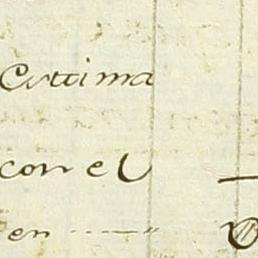 Estima
con el
en